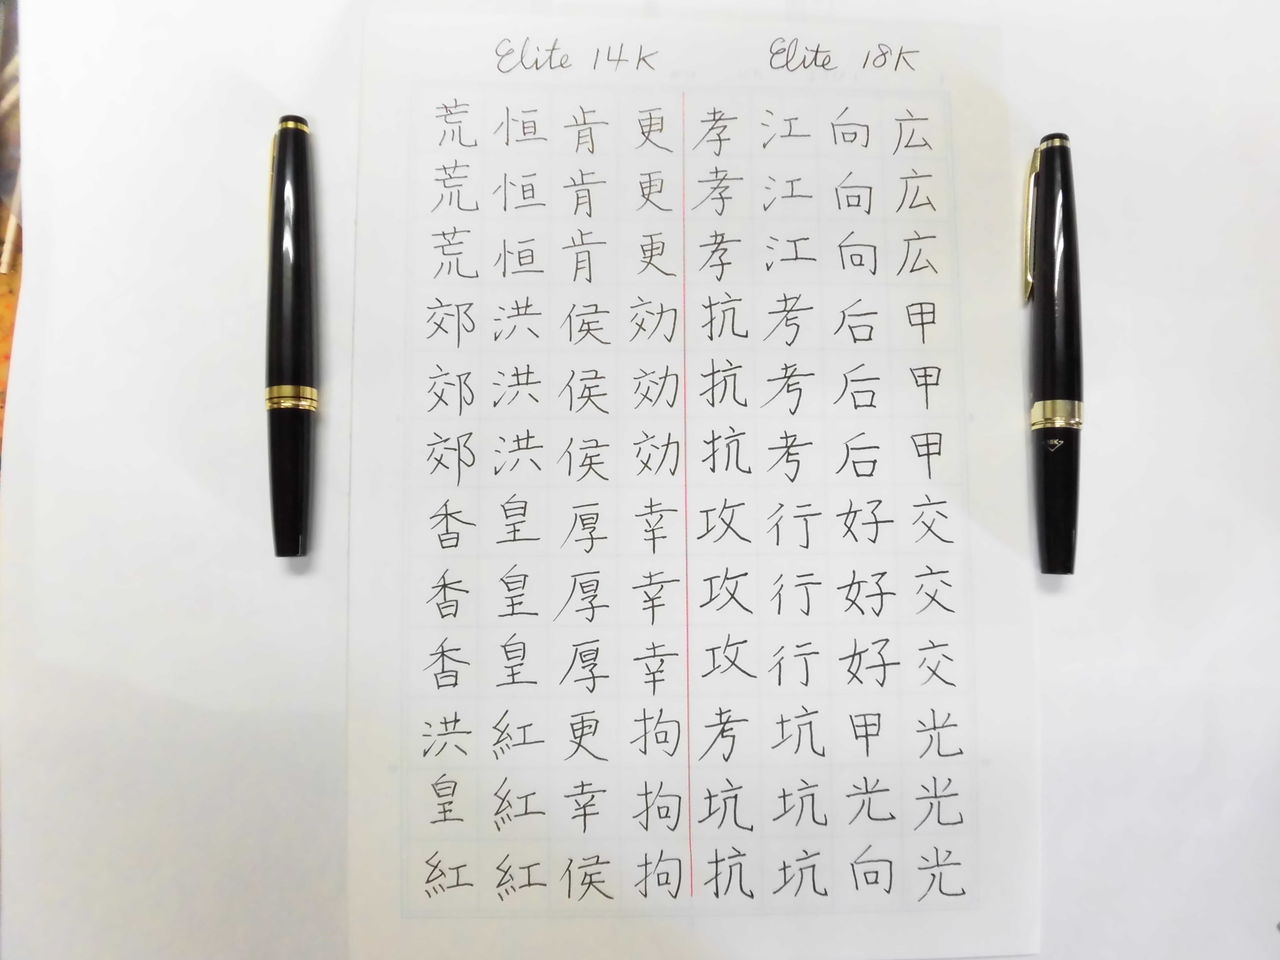 Elite 14K
Elite 18K
広広広甲甲甲交交交光光光
向向向后后后好好好甲光向
江江江考考考行行行坑坑坑
孝孝孝抗抗抗攻攻攻考坑抗
更更更効効効幸幸幸拘拘拘
肯肯肯侯侯侯厚厚厚更幸侯
恒恒恒洪洪洪皇皇皇紅紅紅
荒荒荒郊郊郊香香香洪皇紅
18K